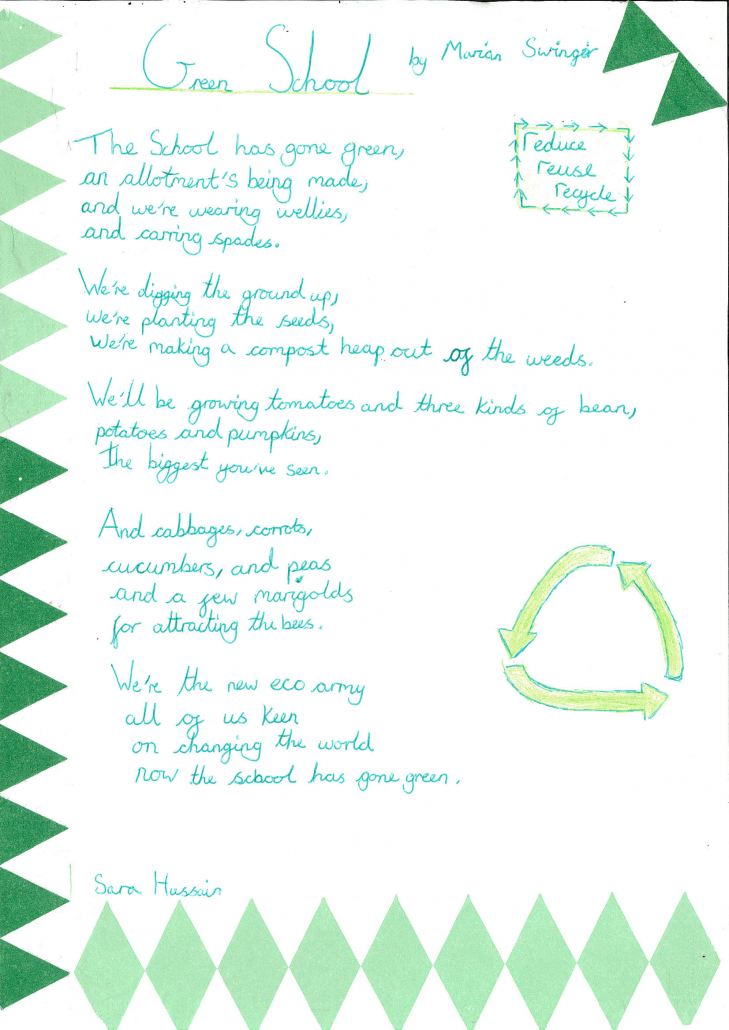 Green School by Marian Swinger
reduce
reuse
recycle
The School has gone green,
an allotment's being made,
and we're wearing wellies,
and carring spades.
We're digging the ground up,
we're planting the seeds,
We're making a compost heap out of the weeds.
We'll be growing tomatoes and three kinds of bean,
potatoes and pumpkins,
The biggest you've seen.
And cabbages, corrots,
cucumbers, and peas
and a few marigolds
for attracting the bees.
We're the new eco army
all of us keen
on changing the world
now the school has gone green.
Sara Hussain